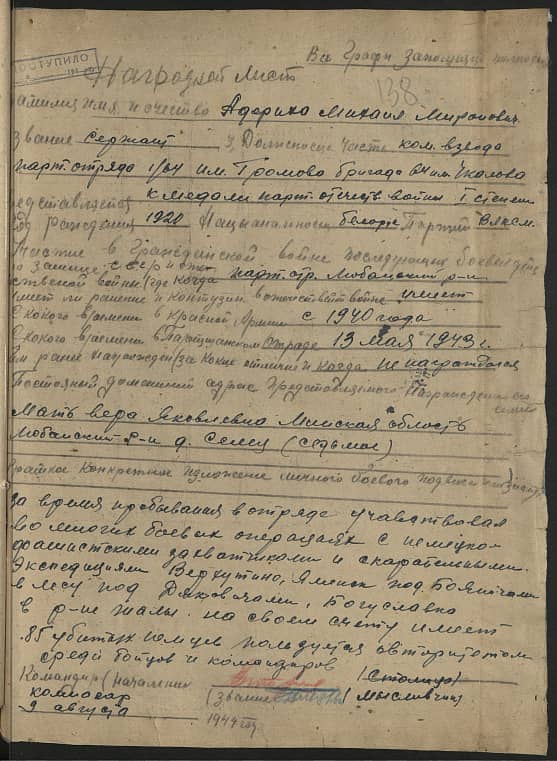 ПОСТУПИЛО
Все графы заполнять полностью
138
Наградной лист
амилия имя и очество Адериха Михаил Миронович
звание сержант 3. Должность часть ком. взвода
парт. отряда им. Громова бригада им. Чкалова
редставляется к медали парт. отечеств войны I степени
од рождения 1920 Национальность белорус Партий Влксм.
участие в Гражданской войне последующих боевых дейс
о защище СССР и отеч парт. отр. Любанский р-н
ственой войны (где когда
имеет ли ранение и контузии в отечествен войне имеет
С какого времени в Красной Армии с 1940 года
С какого времени в Партизанском отряде 13 мая 1943 г.
ем ранее награжден (за какие отличия и когда не награждался
Постояный домашний адрес представляемого к награждению его семьи
Мать Вера Яковлевна Минская область
Любанский р-н д. Селец (седьмое)
Краткое конкретное изложение личного боевого подвига или
за время пребывания в отряде учавствовал
во многих боевых операциях с немецко-
фашистскими захватчиками и скарательными
Экспедициями Верхутино, Яменск под Бояничами
в лесу под Даковичами, Богуславка
в р-не Жалы. на своем счету имеет
85 убитых немцев пользуется авторитетом
среди бойцов и командиров
Командир (начальник (Столица)
комисар (звание (Мысливчик)
9 августа 1944 год